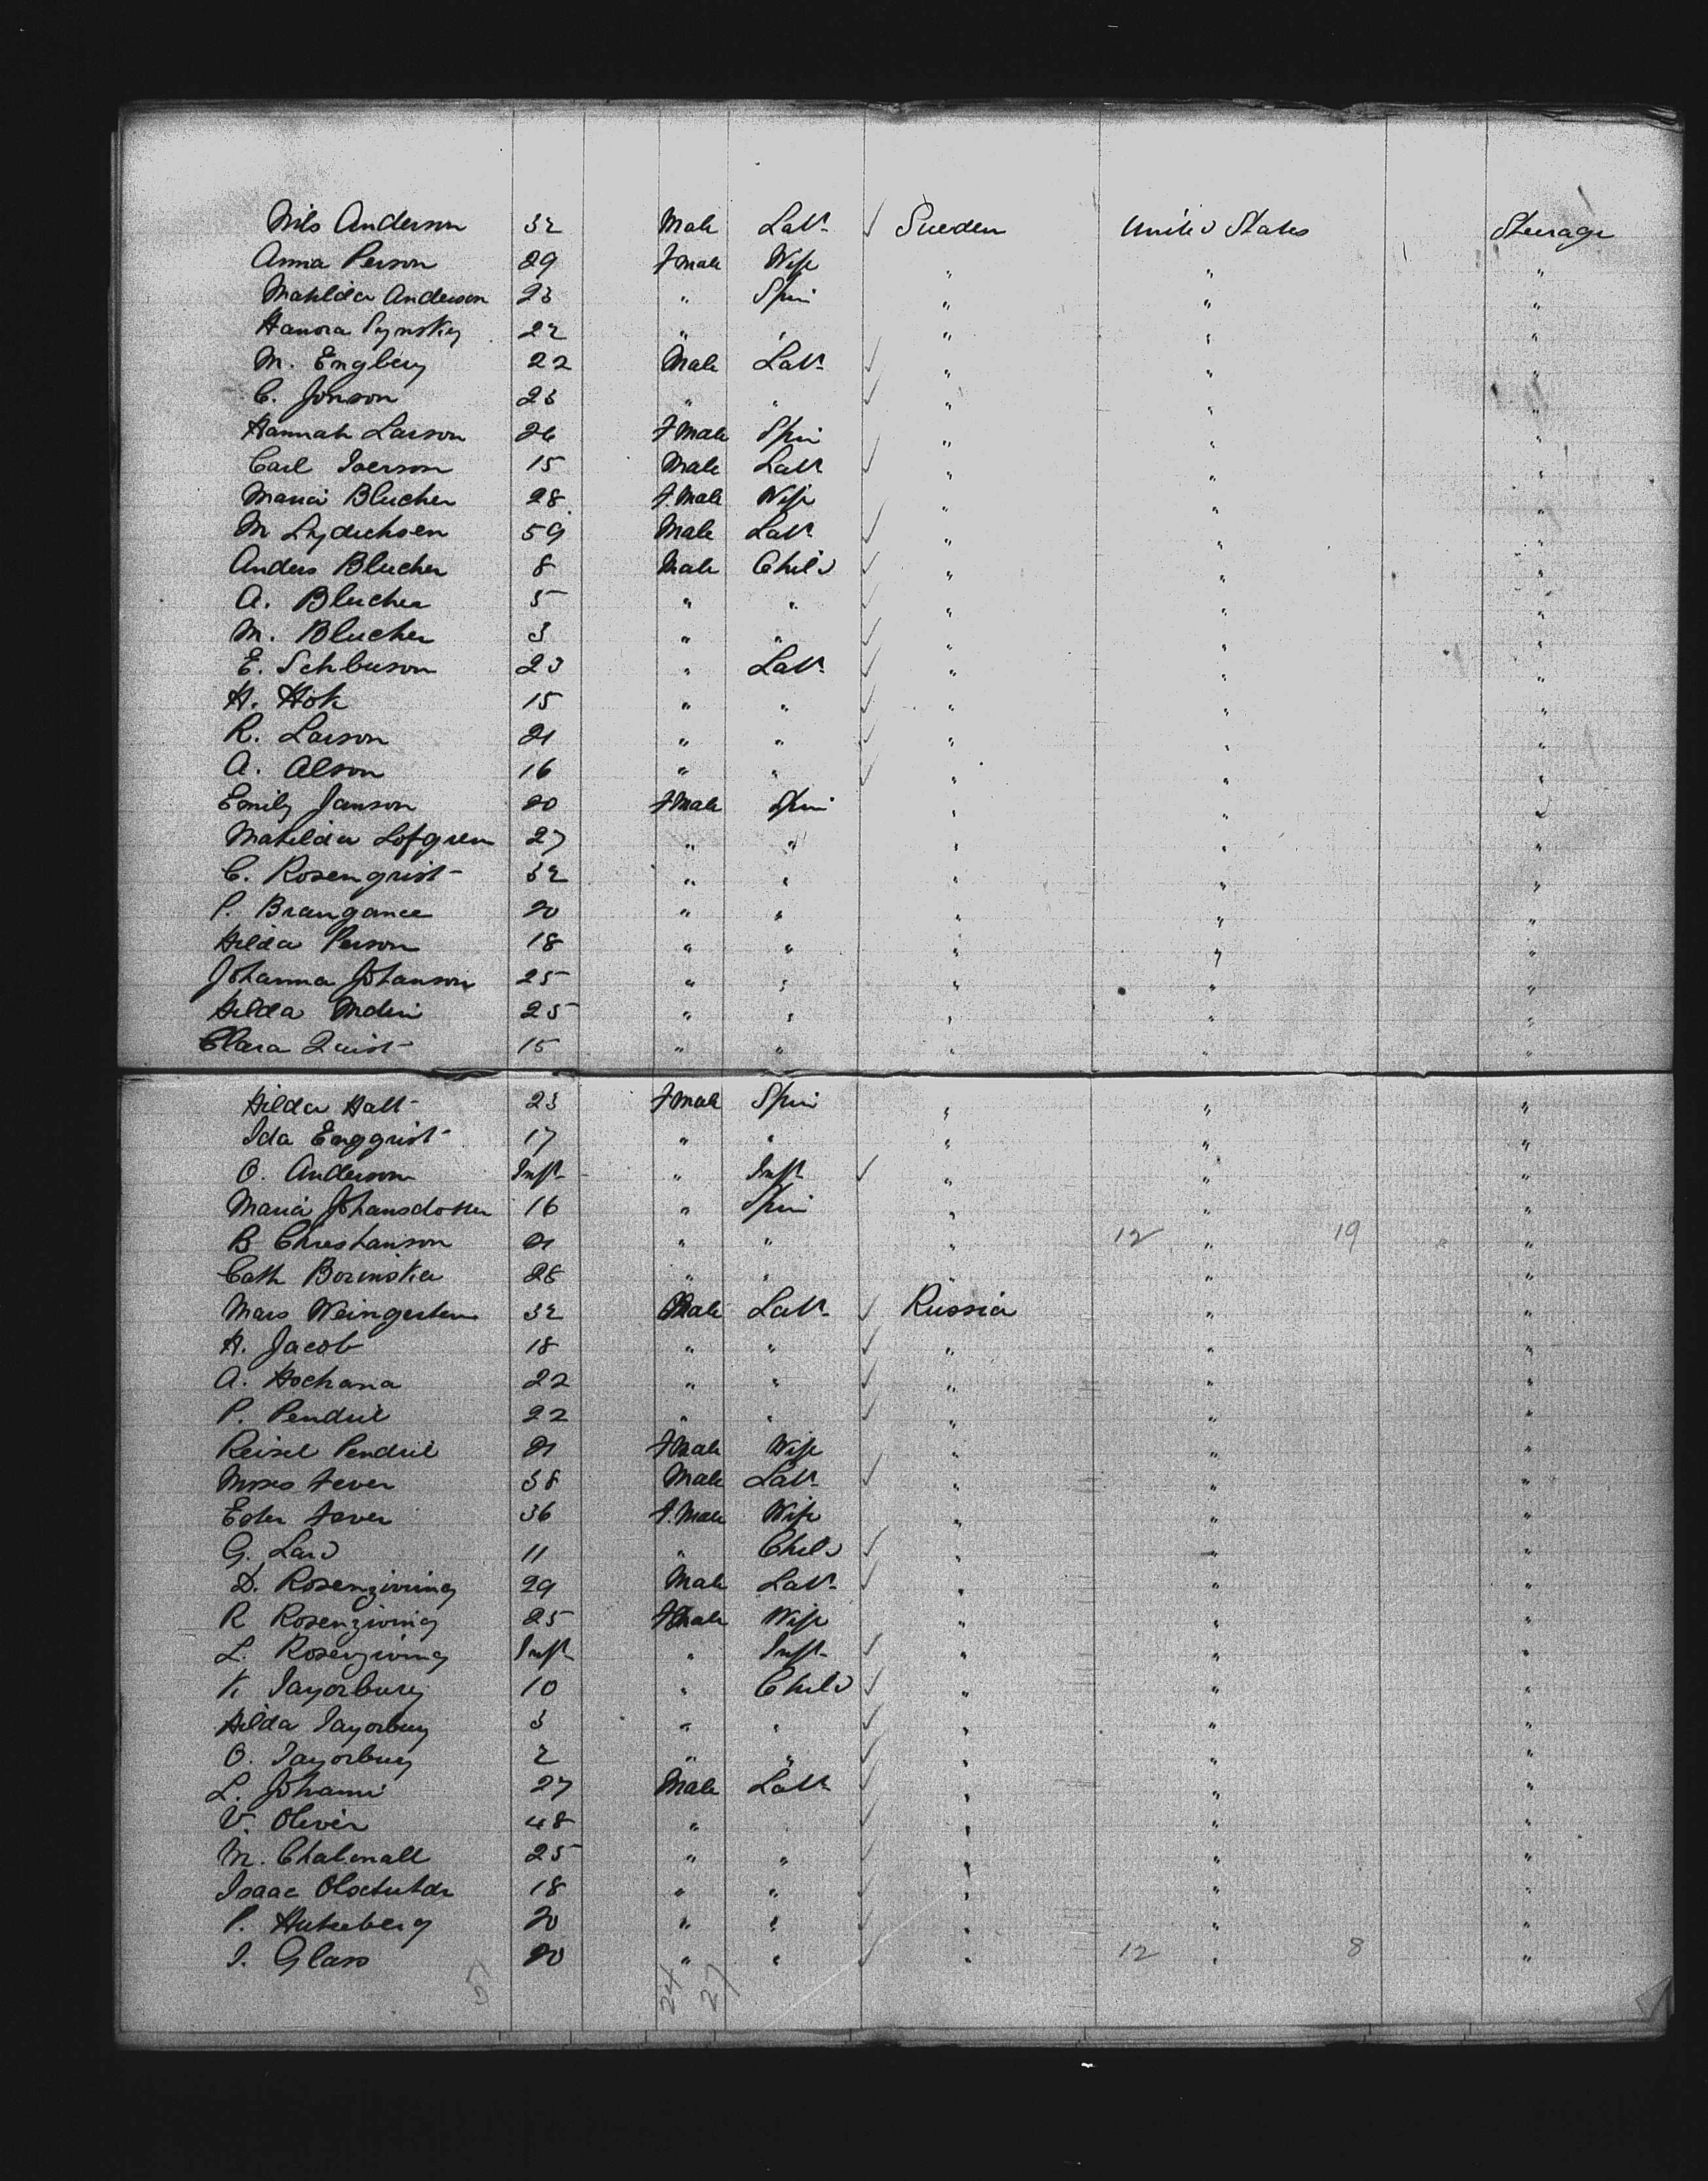 Nils Anderson 32 Male Labr ✓ Sweden United States Steerage
Anna Person 29 Fmale Wife " " "
Mathilda Anderson 23 " Spin " " "
Hanora 22 " " " " "
M. Engberg 22 Male Labr ✓ " " "
C. Jonson 23 " " ✓ " " "
Hannah Larson 26 Fmale Spin " " "
Carl Iverson 15 Male Labr ✓ " " "
Maria Blucher 28 F.Male Wife " " "
M Lydichsen 59 Male Labr ✓ " " "
Anders Blucher 8 Male Child ✓ " " "
A. Blucher 5 " " ✓ " " "
M. Blucher 3 " " ✓ " " "
E. 23 " Labr ✓ " " "
H. Hök 15 " " ✓ " " "
R. Larson 21 " " ✓ " " "
A. Alson 16 " " ✓ " " "
Emily Janson 20 Fmale Spin " " "
Mathilda Lofgren 27 " " " " "
C. Rosenqrist 32 " " " " "
P. Brangance 20 " " " " "
Hilda Person 18 " " " " "
Johanna Johanson 25 " " " " "
Hilda 25 " " " " "
Clara Quist 15 " " " " "
Hilda Hall 23 Fmale Spin " " "
Ida Engqrist 17 " " " " "
O. Anderson Inft " Inft ✓ " " "
Maria Johansdotter 16 " Spin " " "
B Christianson 21 " " " 12 " 19 "
Cath Borinska 28 " " " " "
Mars Weingerten 32 Male Labr ✓ Russia " "
H. Jacob 18 " " ✓ " " "
A. Hochana 22 " " ✓ " " "
P. Pendril 22 " " ✓ " " "
Reisel Pendril 21 Fmale Wife " " "
Moses Fever 38 Male Labr ✓ " " "
Ester Fever 36 F.Male Wife " " "
G. 11 " Child ✓ " " "
D. Rosenziving 29 Male Labr ✓ " " "
R Rosenziving 25 Fmale Wife " " "
L. Rosenziving Inft " Inft ✓ " " "
K Jayorburg 10 " Child ✓ " " "
Hilda Jayorburg 3 " " ✓ " " "
O. Jayorburg 2 " " ✓ " " "
L. Johanni 27 Male Labr ✓ " " "
V. Olivér 48 " " ✓ " " "
M. Chalmall 25 " " ✓ " " "
Isaac 18 " " ✓ " " "
P. 20 " " ✓ " " "
I. Glass 20 " " ✓ " 12 " 8 "
24 27